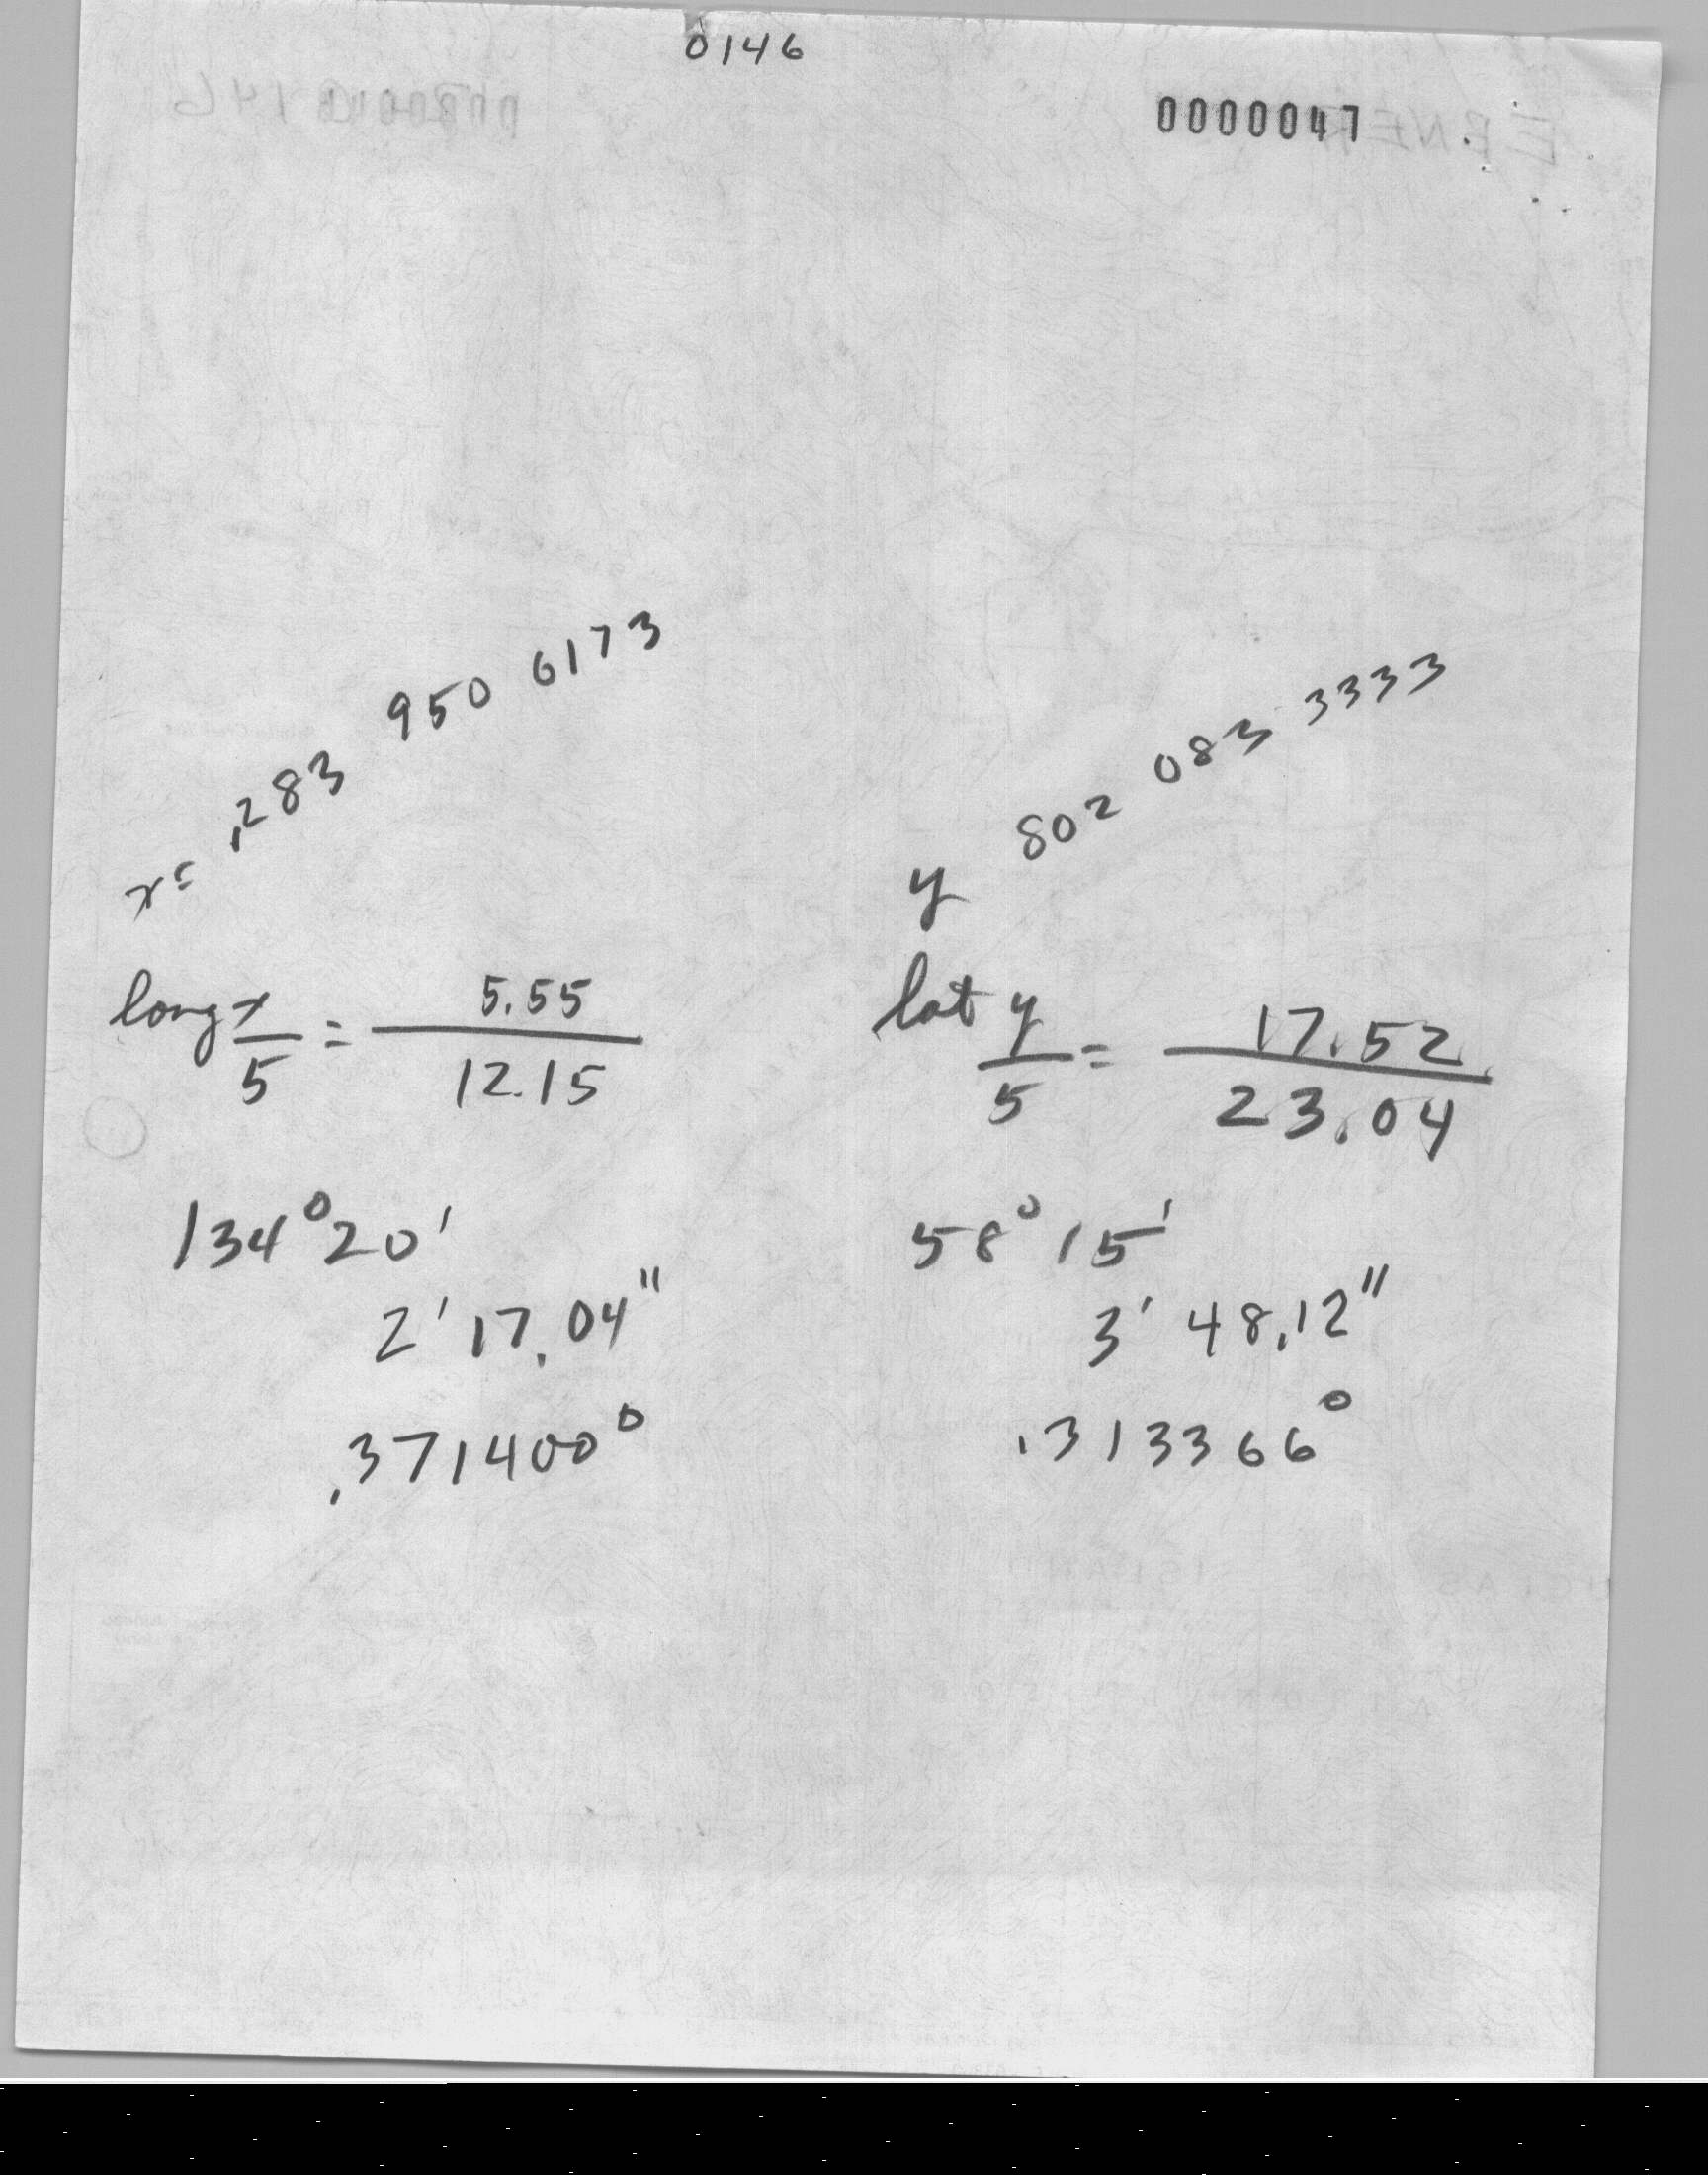 0146
0000047
x= .283 950 6173
long x/5 = 5.55/12.15
134° 20'
2' 17.04"
.371400°
y 802 083 3333
lat y/5 = 17.52/23.04
58° 15'
3' 48.12"
.313366°